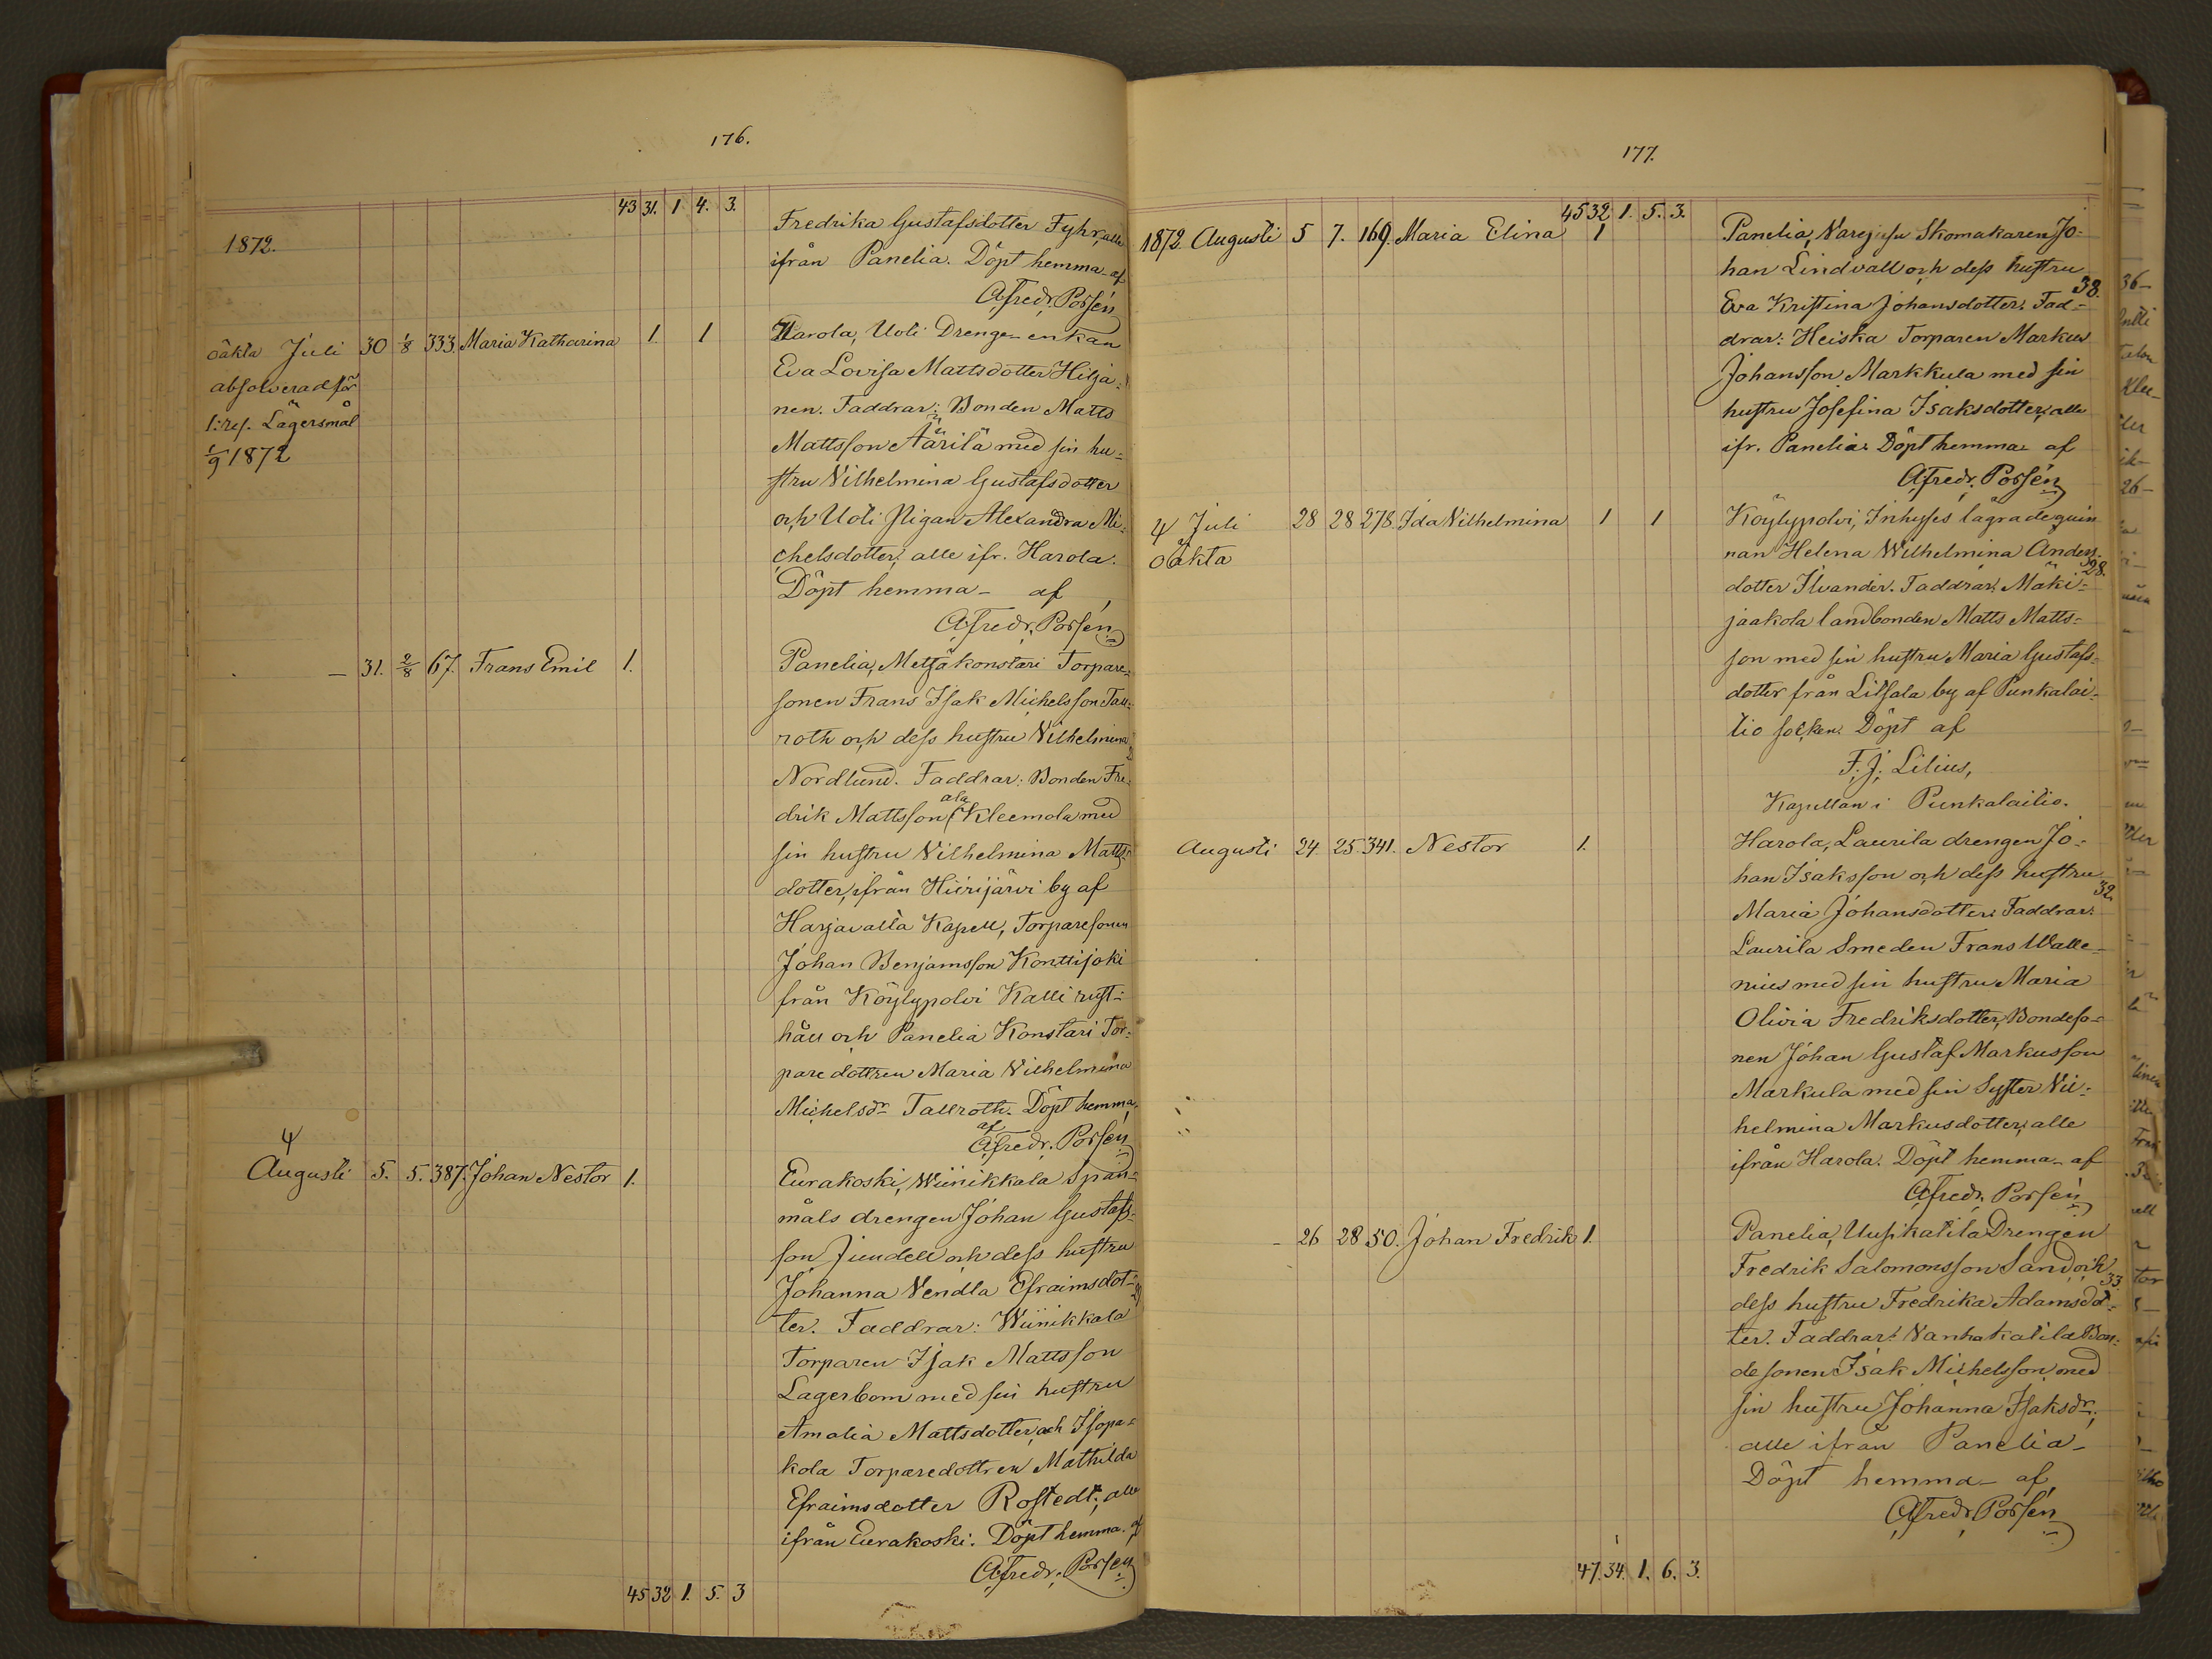 176.
43 31. 1 4. 3.
1872.
Fredrika Gustafsdotter Fyhr, alle
ifrån Panelia. Döpt hemma af
A Fredr. Porsén
oäkta Juli 30 1/8 333. Maria Katharina 1. 1
absolverad för
1:res. Lägersmål
1/9 1872
Harola, Uoti Drenge-enkan
Eva Lovisa Mattsdotter Hilja-
nen. Faddrar: Bonden Matts
Mattsson Äärilä med sin hu-
stru Vilhelmina Gustafsdotter
och Uoti Pigan Alexandra Mi-
chelsdotter, alle ifr. Harola.
Döpt hemma- af
A Fredr. Porsén
— 31. 2/8 67. Frans Emil 1.
Panelia, Metsäkonstari Torpare-
sonen Frans Isak Michelsson Tall-
roth och dess hustru Vilhelmina
Nordlund. Faddrar: Bonden Fre-
drik Mattsson ala Kleemola med
sin hustru Vilhelmina Matts-
dotter, ifrån Hiirijärvi by af
Harjavalta Kapell, Torparesonen
Johan Benjamsson Konttijoki
från Köylypolvi Kalli rust-
håll och Panelia Konstari Tor-
paredottren Maria Vilhelmina
Michelsdr Tallroth. Döpt hemma
af
A Fredr. Porsén
Augusti 5. 5. 387. Johan Nestor 1.
Eurakoski, Wiinikkala Span-
måls drengen Johan Gustafs-
son Jundell och dess hustru
Johanna Vendla Efraimsdot-
ter. Faddrar: Wiinikkala
Torparen Isak Mattsson
Lagerbom med sin hustru
Amalia Mattsdotter, och Isopa-
kola Torparedottren Mathilda
Efraimsdotter Rostedt, alle
ifrån Eurakoski. Döpt hemma af
A Fredr. Porsén
45 32 1. 5. 3
177.
45 32 1. 5. 3.
1872. Augusti 5 7. 169. Maria Elina 1
Panelia, Skomakaren Jo-
han Lindvall och dess hustru
38.
Eva Kristina Johansdotter. Fad-
drar: Heiska Torparen Markus
Johansson Markkula med sin
hustru Josefina Isaksdotter, alle
ifr. Panelia. Döpt hemma af
A Fredr. Porsén
Juli 28 28 278. Ida Vilhelmina 1 1
oäkta
Köylypolvi, Inhyses lägrade qvin
nan Helena Wilhelmina Anders-
28.
dotter Ilvander. Faddrar: Mäki-
jaakola landbonden Matts Matts-
son med sin hustru Maria Gustafs-
dotter från Litsala by af Punkalai-
tio socken. Döpt af
F. J. Lilius,
Kapellan i Punkalaitio.
Augusti 24. 25. 341. Nestor 1.
Harola, Laurila drengen Jo-
han Isaksson och dess hustru
32.
Maria Johansdotter. Faddrar:
Laurila Smeden Frans Walle-
nius med sin hustru Maria
Olivia Fredriksdotter, Bondeso-
nen Johan Gustaf Markusson
Markula med sin Syster Vil-
helmina Markusdotter, alle
ifrån Harola. Döpt hemma af
A Fredr. Porsén
– 26 28 50. Johan Fredrik 1.
Panelia, Uusikatila Drengen
Fredrik Salomonsson Sand och
33.
dess hustru Fredrika Adamsdot-
ter. Faddrar: Vanhakatila Bon-
desonen Isak Michelsson med
sin hustru Johanna Isaksdr,
alle ifrån Panelia-
Döpt hemma- af
A Fredr. Porsén
47. 34. 1. 6. 3.